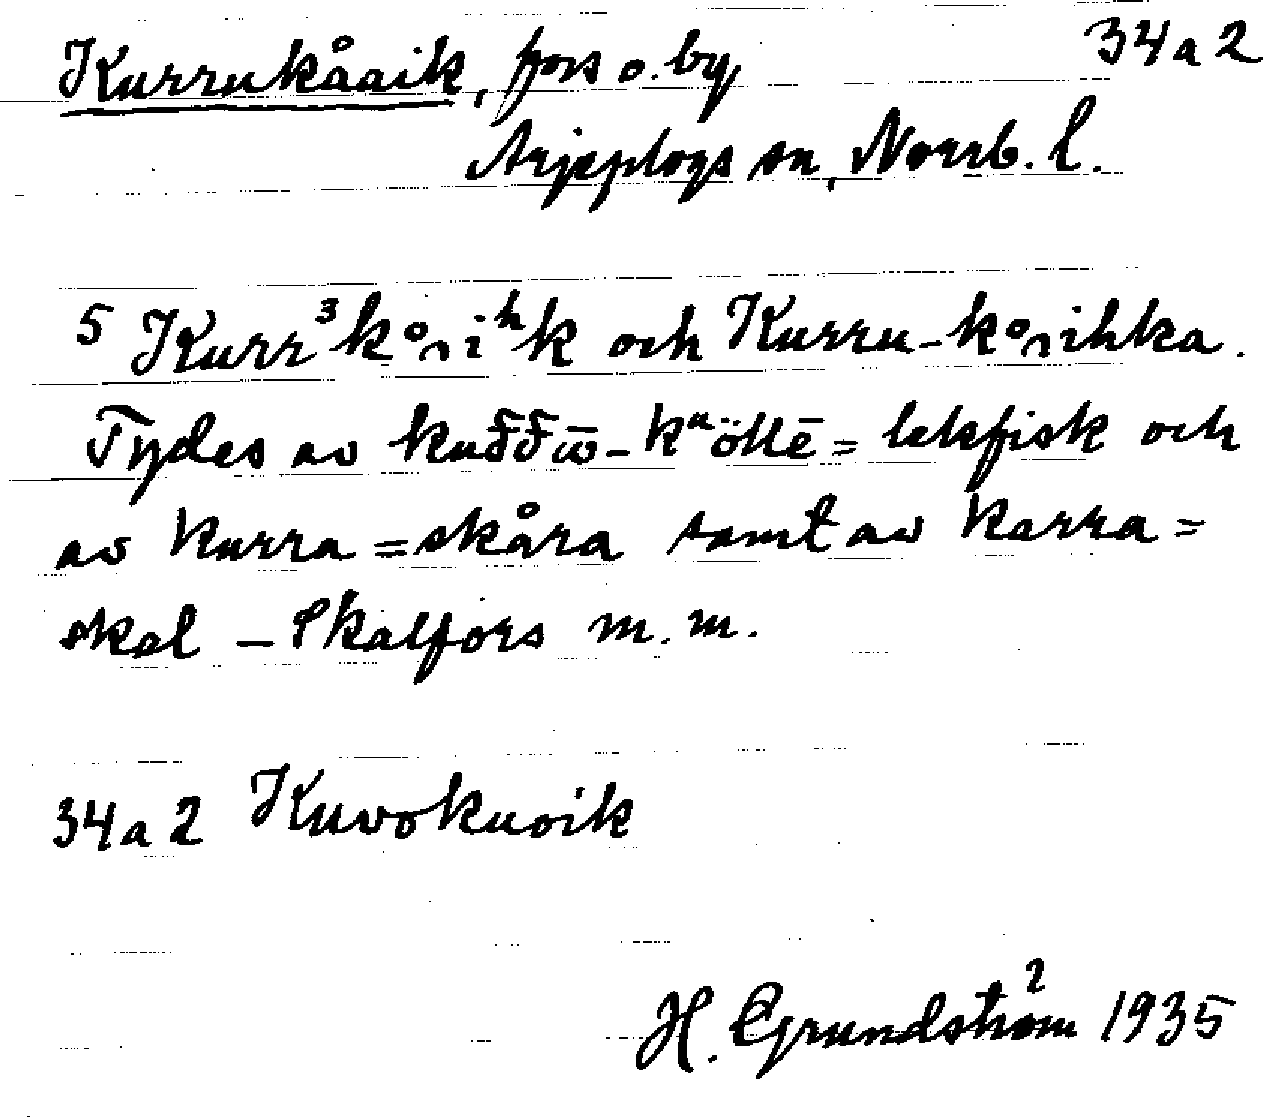 Kurrukåaik, fors o. by 34a2
Arjeplogs sn, Norrb. l.
5 Kurr³kåˎiʰk och Kurru-kåˎihka.
Tydes av kuđđω̄-kᵘöllē = lekfisk och
av kurra = skåra samt av karra =
skal – Skalfors m.m.
34a2 Kuvokuoik
H. Grundström 1935